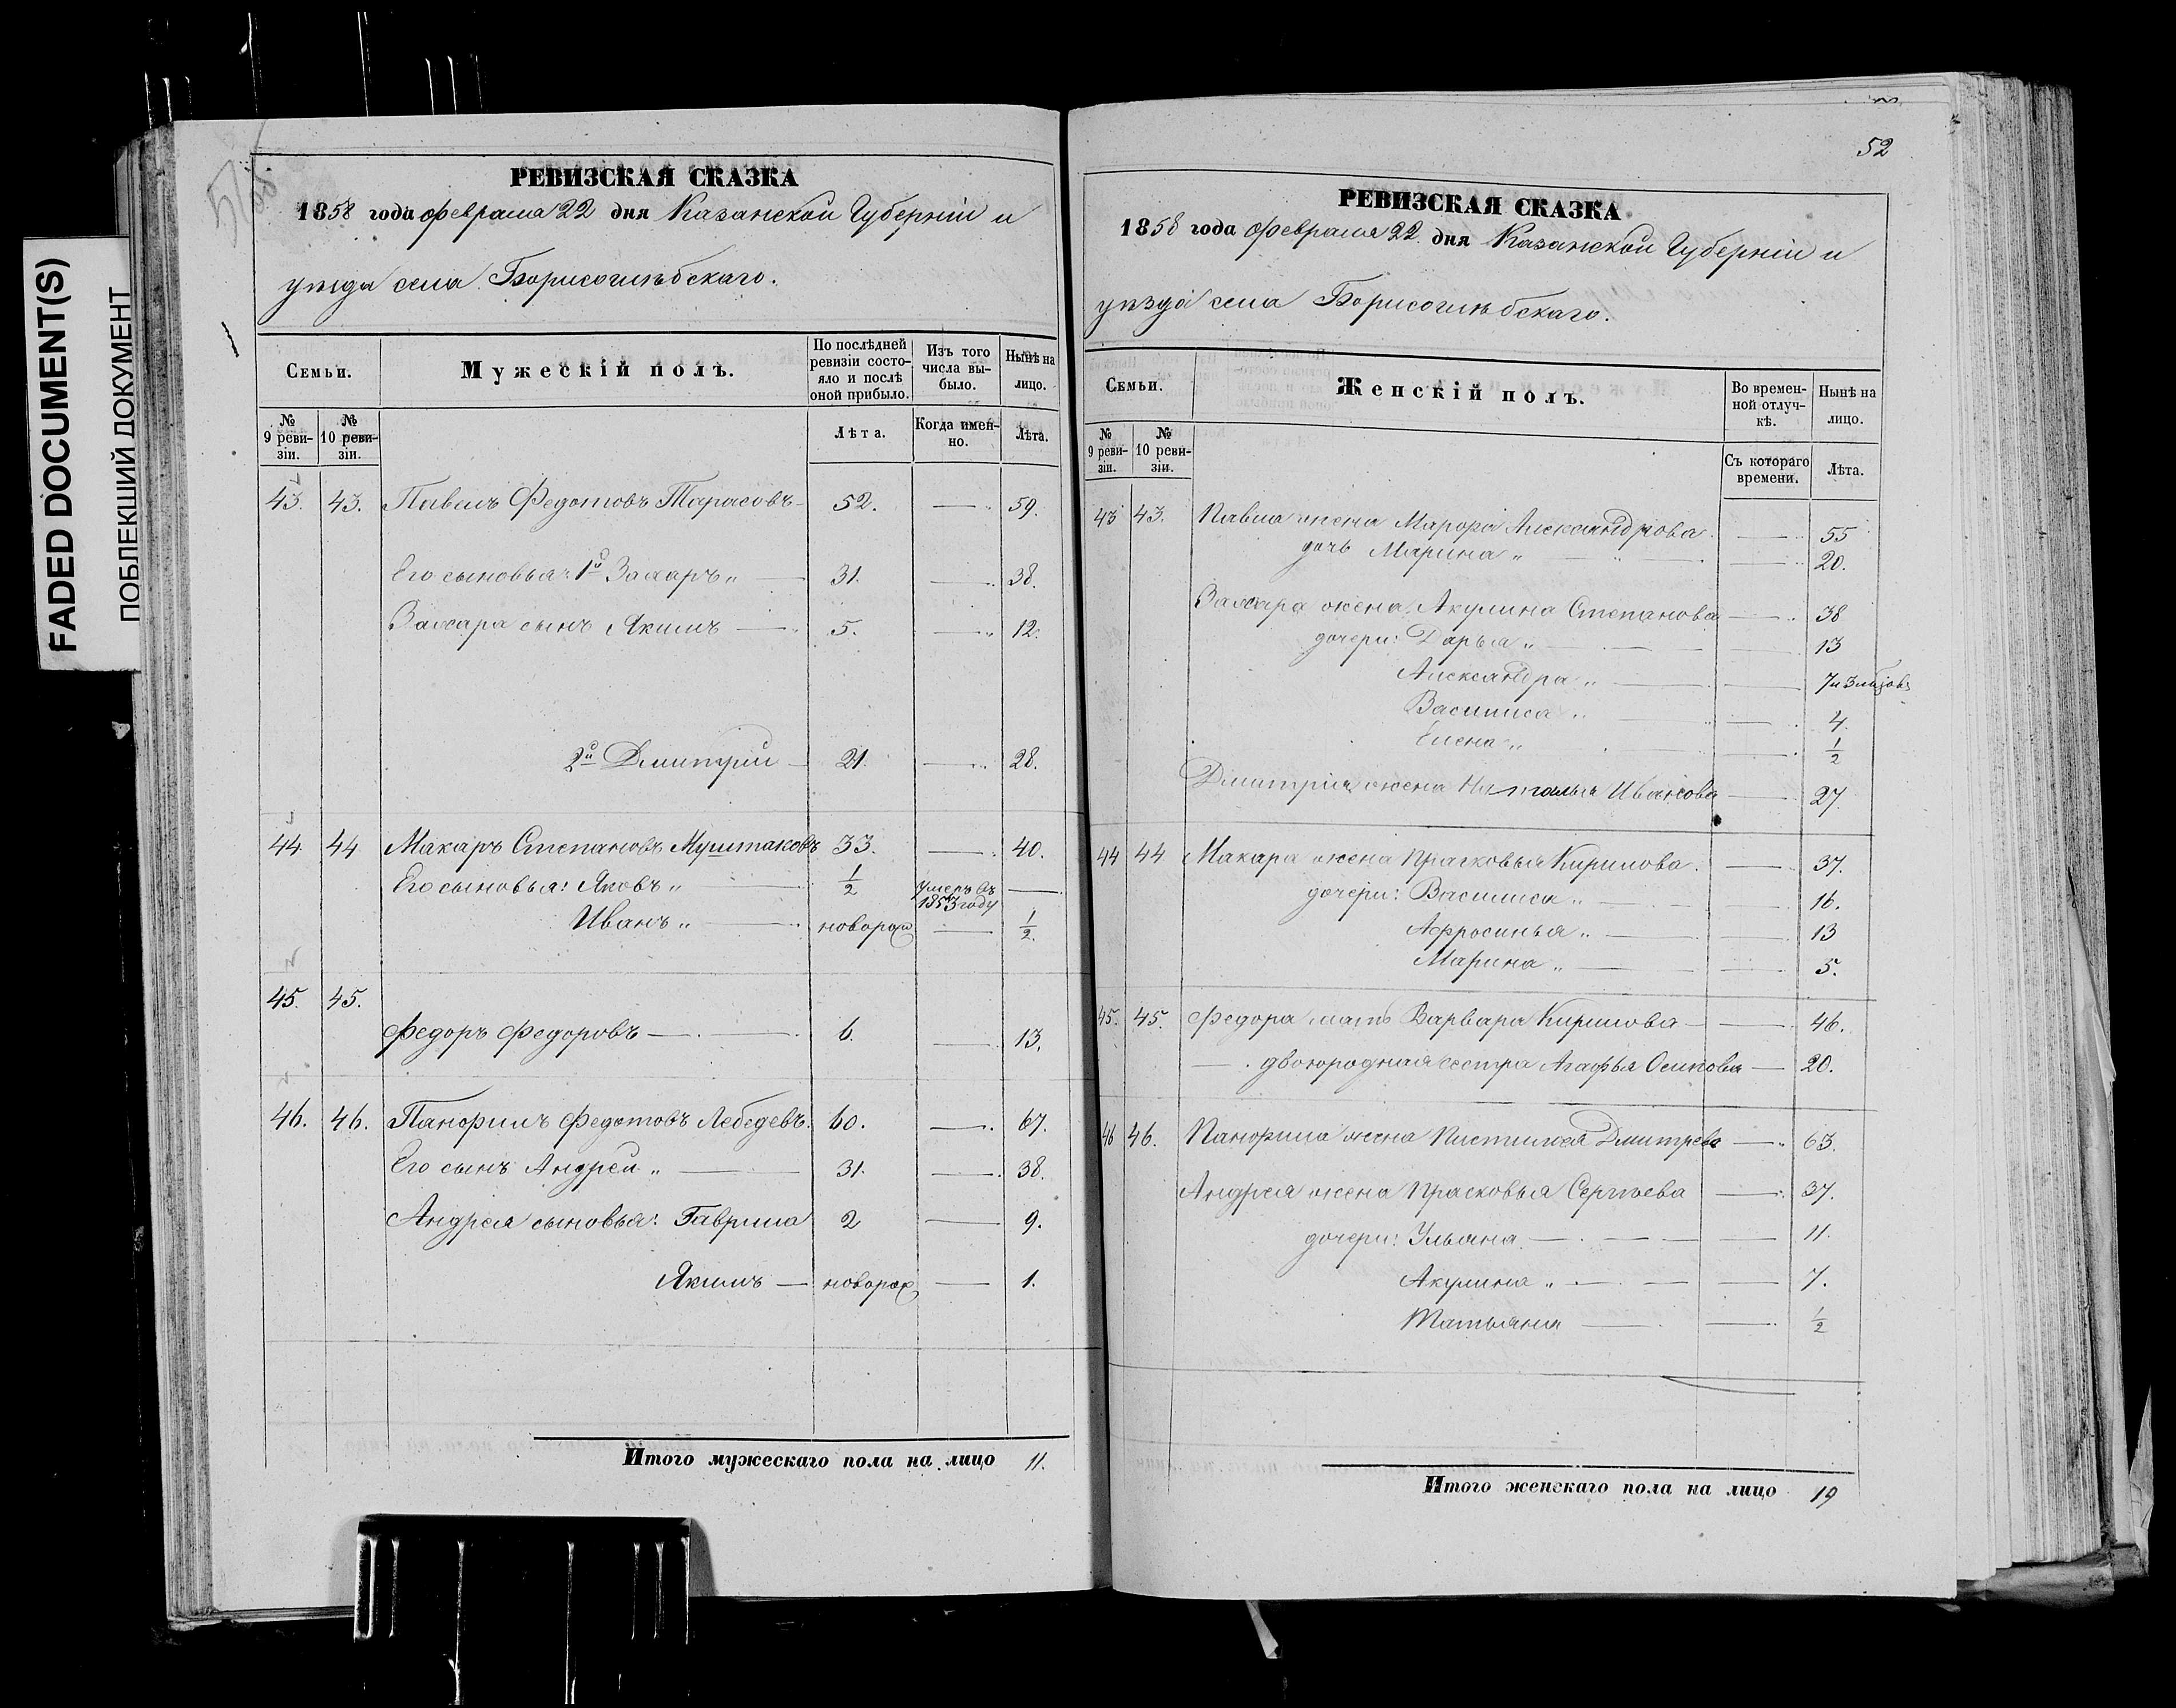 FADED DOCUMENT(S)
ПОБЛЕКШИЙ ДОКУМЕНТ
РЕВИЗСКАЯ СКАЗКА
1858 года февраля 22 дня Казанской Губерніи и
уѣзда села Борисоглѣбскаго.
Семьи.
Мужескій полъ.
По послѣдней ревизіи состояло и послѣ оной прибыло.
Изъ того числа выбыло.
Нынѣ на лицо.
№ 9 ревизіи.
№ 10 ревизіи.
Лѣта.
Когда именно.
Лѣта.
43. 43. Павелъ Федотовъ Тарасовъ 52. 59.
Его сыновья: 1й Захаръ „ 31. 38.
Захара сынъ Якимъ 5. 12.
2й Дмитрій 21. 28.
44 44 Макаръ Степановъ Муштаковъ 33. 40.
Его сыновья: Яковъ „ 1/2 умеръ въ 1853 году
Иванъ „ новорож 1/2.
45. 45.
Федоръ Федоровъ 6. 13.
46. 46. Панфилъ Федотовъ Лебедевъ. 60. 67.
Его сынъ Андрей „ 31. 38.
Андрея сыновья: Гаврила 2 9.
Якимъ новорож 1.
Итого мужескаго пола на лицо 11.
52
РЕВИЗСКАЯ СКАЗКА
1858 года февраля 22 дня Казанской Губерніи и
уѣзда села Борисоглѣбскаго.
Семьи.
Женскій полъ.
Во временной отлучкѣ.
Нынѣ на лицо.
№ 9 ревизіи.
№ 10 ревизіи.
Съ котораго времени.
Лѣта.
43 43. Павла жена Марфа Александрова. 55
дочь Марина „ 20.
Захара жена Акулина Степанова 38
дочери: Дарья „ 13
Александра „ 7
Василиса „ 4.
Елена „ 1/2
Дмитрія жена Наталья Иванова 27.
44 44 Макара жена Прасковья Кирилова. 37.
дочери: Василиса „ 16.
Афросинья „ 13
Марина „ 5.
45. 45. Федора мать Варвара Кирилова 46.
двоюродная сестра Агафья Осипова 20.
46 46. Панфила жена Дмитрева 63.
Андрея жена Прасковья Сергѣева 37.
дочери: Ульяна 11.
Акулина „ 7.
Татьяна 1/2
Итого женскаго пола на лицо 19